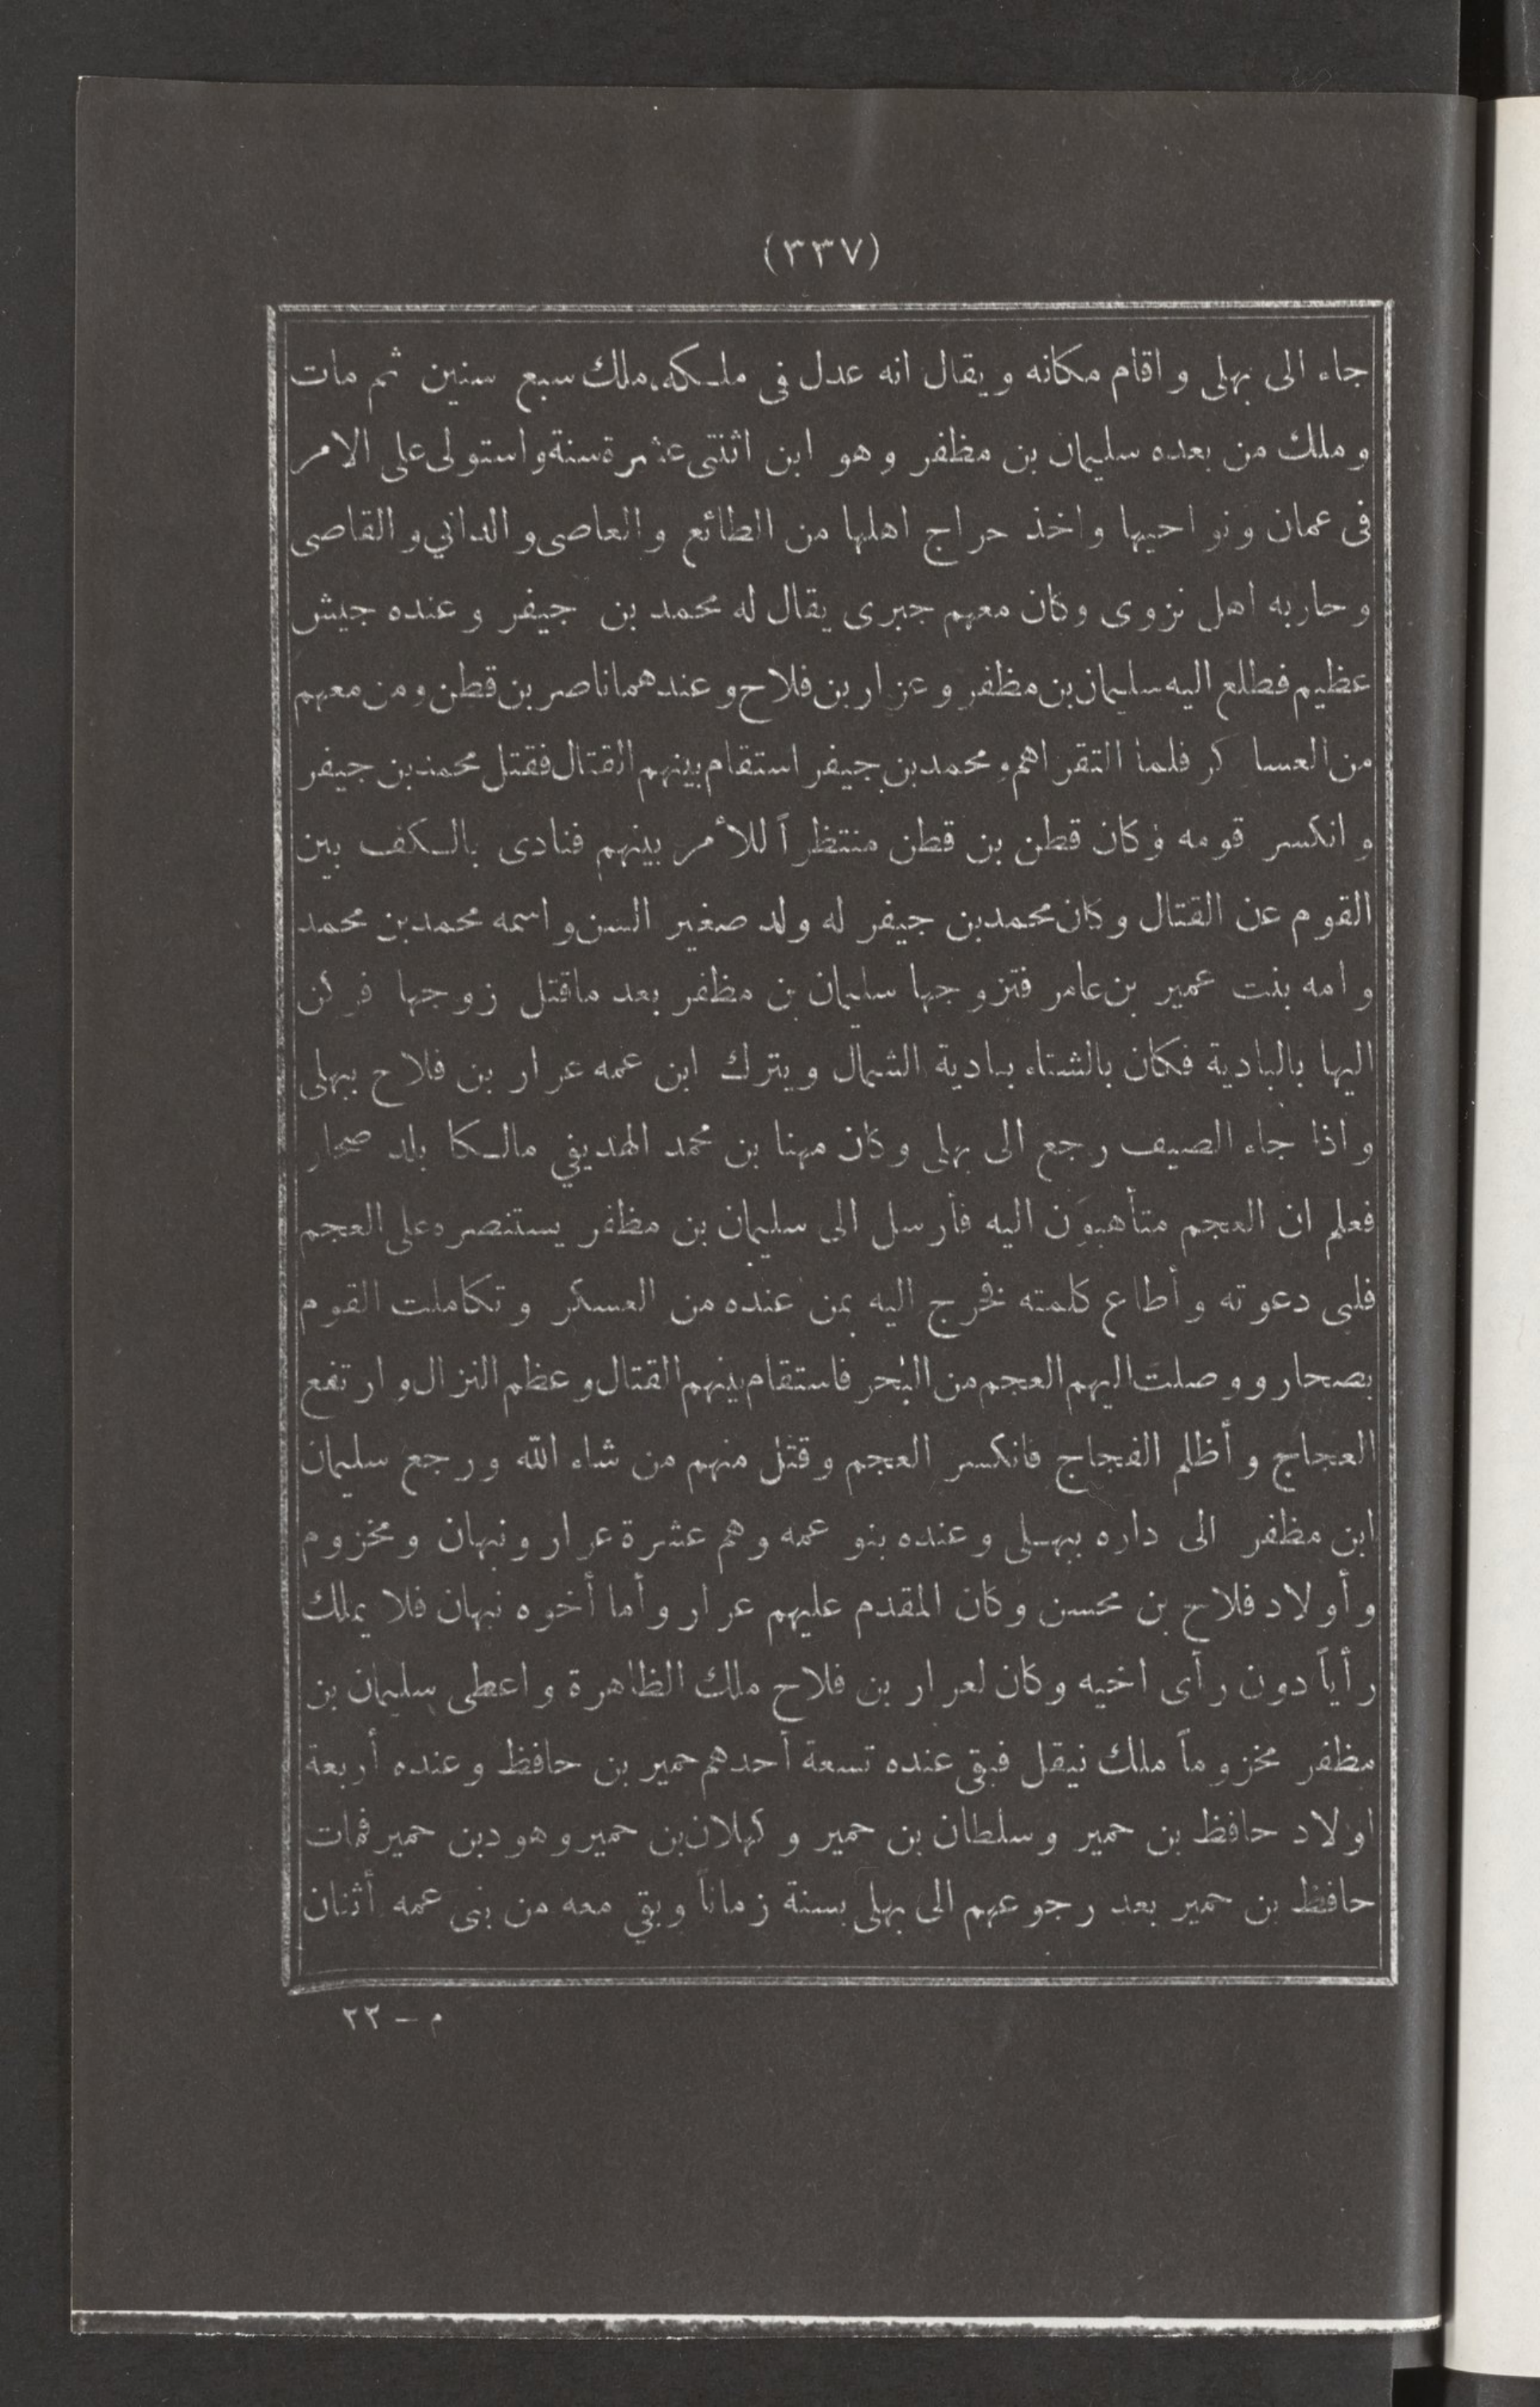 (٣٣٧)
جاء الى بهلى واقام مكانه ويقال انه عدل فى ملكه، ملك سبع سنين ثم مات
وملك من بعده سليمان بن مظفر وهو ابن اثنتى عشرة سنة واستولى على الامر
فى عمان ونواحيها واخذ حراج اهلها من الطائع والعاصى والدانى والقاصى
وحاربه اهل نزوى وكان معهم جبرى يقال له محمد بن جيفر وعنده جيش
عظيم فطلع اليه سليمان بن مظفر وعرار بن فلاح وعندهما ناصر بن قطن ومن معهم
من العساكر فلما التقراهم ومحمد بن جيفر استقام بينهم القتال فقتل محمد بن جيفر
وانكسر قومه وكان قطن بن قطن منتظراً للأمر بينهم فنادى بالكف بين
القوم عن القتال وكان محمد بن جيفر له ولد صغير السن واسمه محمد بن محمد
وامه بنت عمير بن عامر فتزوجها سليمان بن مظفر بعد ماقتل زوجها فركن
اليها بالبادية فكان بالشتاء ببادية الشمال ويترك ابن عمه عرار بن فلاح ببهلى
واذا جاء الصيف رجع الى بهلى وكان مهنا بن محمد الهديفي مالكا بلد صحار
فعلم ان العجم متأهبون اليه فأرسل الى سليمان بن مظفر يستنصره على العجم
فلبى دعوته وأطاع كلمته فخرج اليه بمن عنده من العسكر وتكاملت القوم
بصحار ووصلت اليهم العجم من البحر فاستقام بينهم القتال وعظم النزال وارتفع
العجاج وأظلم الفجاج فانكسر العجم وقتل منهم من شاء الله ورجع سليمان
ابن مظفر الى داره ببهلى وعنده بنو عمه وهم عشرة عرار ونبهان ومخزوم
وأولاد فلاح بن محسن وكان المقدم عليهم عرار وأما أخوه نبهان فلا يملك
رأياً دون رأى اخيه وكان لعرار بن فلاح ملك الظاهرة واعطى سليمان بن
مظفر مخزوماً ملك نيقل فبقى عنده تسعة أحدهم حمير بن حافظ وعنده أربعة
اولاد حافظ بن حمير وسلطان بن حمير وكهلان بن حمير وهود بن حمير فمات
حافظ بن حمير بعد رجوعهم الى بهلى بسنة زماناً وبقي معه من بنى عمه أثنان
م – ٢٢